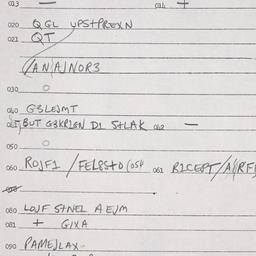 013 — 014 +
020 QGL UPS+PREXN
021 QT
/AN/A/NOR3
030 O
040 G3LEJMT
BUT G3KRIGN D1 S+LAK 042 —
050 O
060 ROJF1 / FEL8S+O (054 061 R1CEPT/A/RF
080 LOJF S+NEL AEJM
081 + GIXA
090 PAMEJLAX